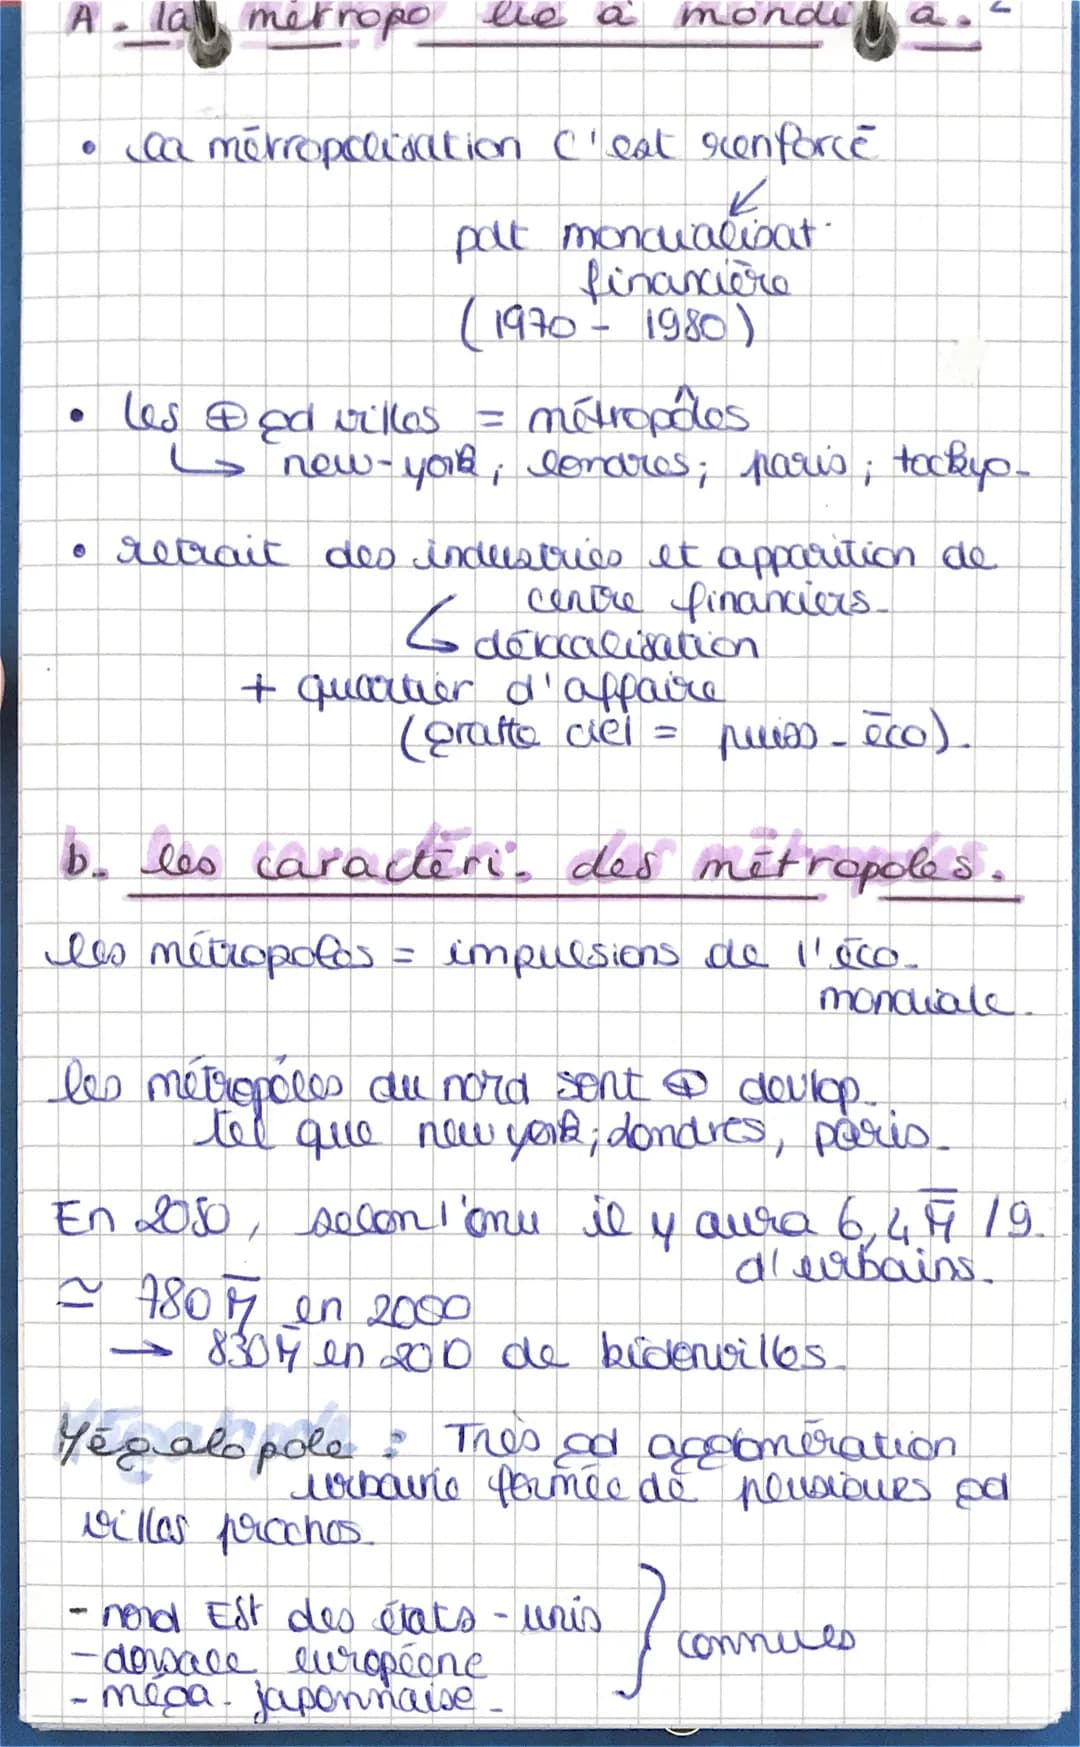 A. la métropo liée à mondi a.
• La métropolisation c'est renforcé
pdt mondialisat.
financière
(1970 - 1980)
• les ⊕ gd villes = métropôles
↳ new-york, londres; paris; tockyo.
• retrait des industries et apparition de
centre financiers.
↳ délocalisation
+ quartier d'affaire
(gratte ciel = puiss. éco).
b. les caractéri. des métropoles.
les métropoles = impulsions de l'éco.
mondiale.
les métropôles du nord sont ⊕ devlop.
tel que new york; londres, paris.
En 2050, selon l'onu il y aura 6,4 M̄ /9.
d'urbains.
≃ 780 M̄ en 2000
→ 830 M̄ en 2010 de bidonvilles.
Mégalopole : Très gd agglomération
urbaine formée de plusieurs gd
villes proches.
- nord Est des états-unis } connues
- dorsale européene
- méga. japonnaise.